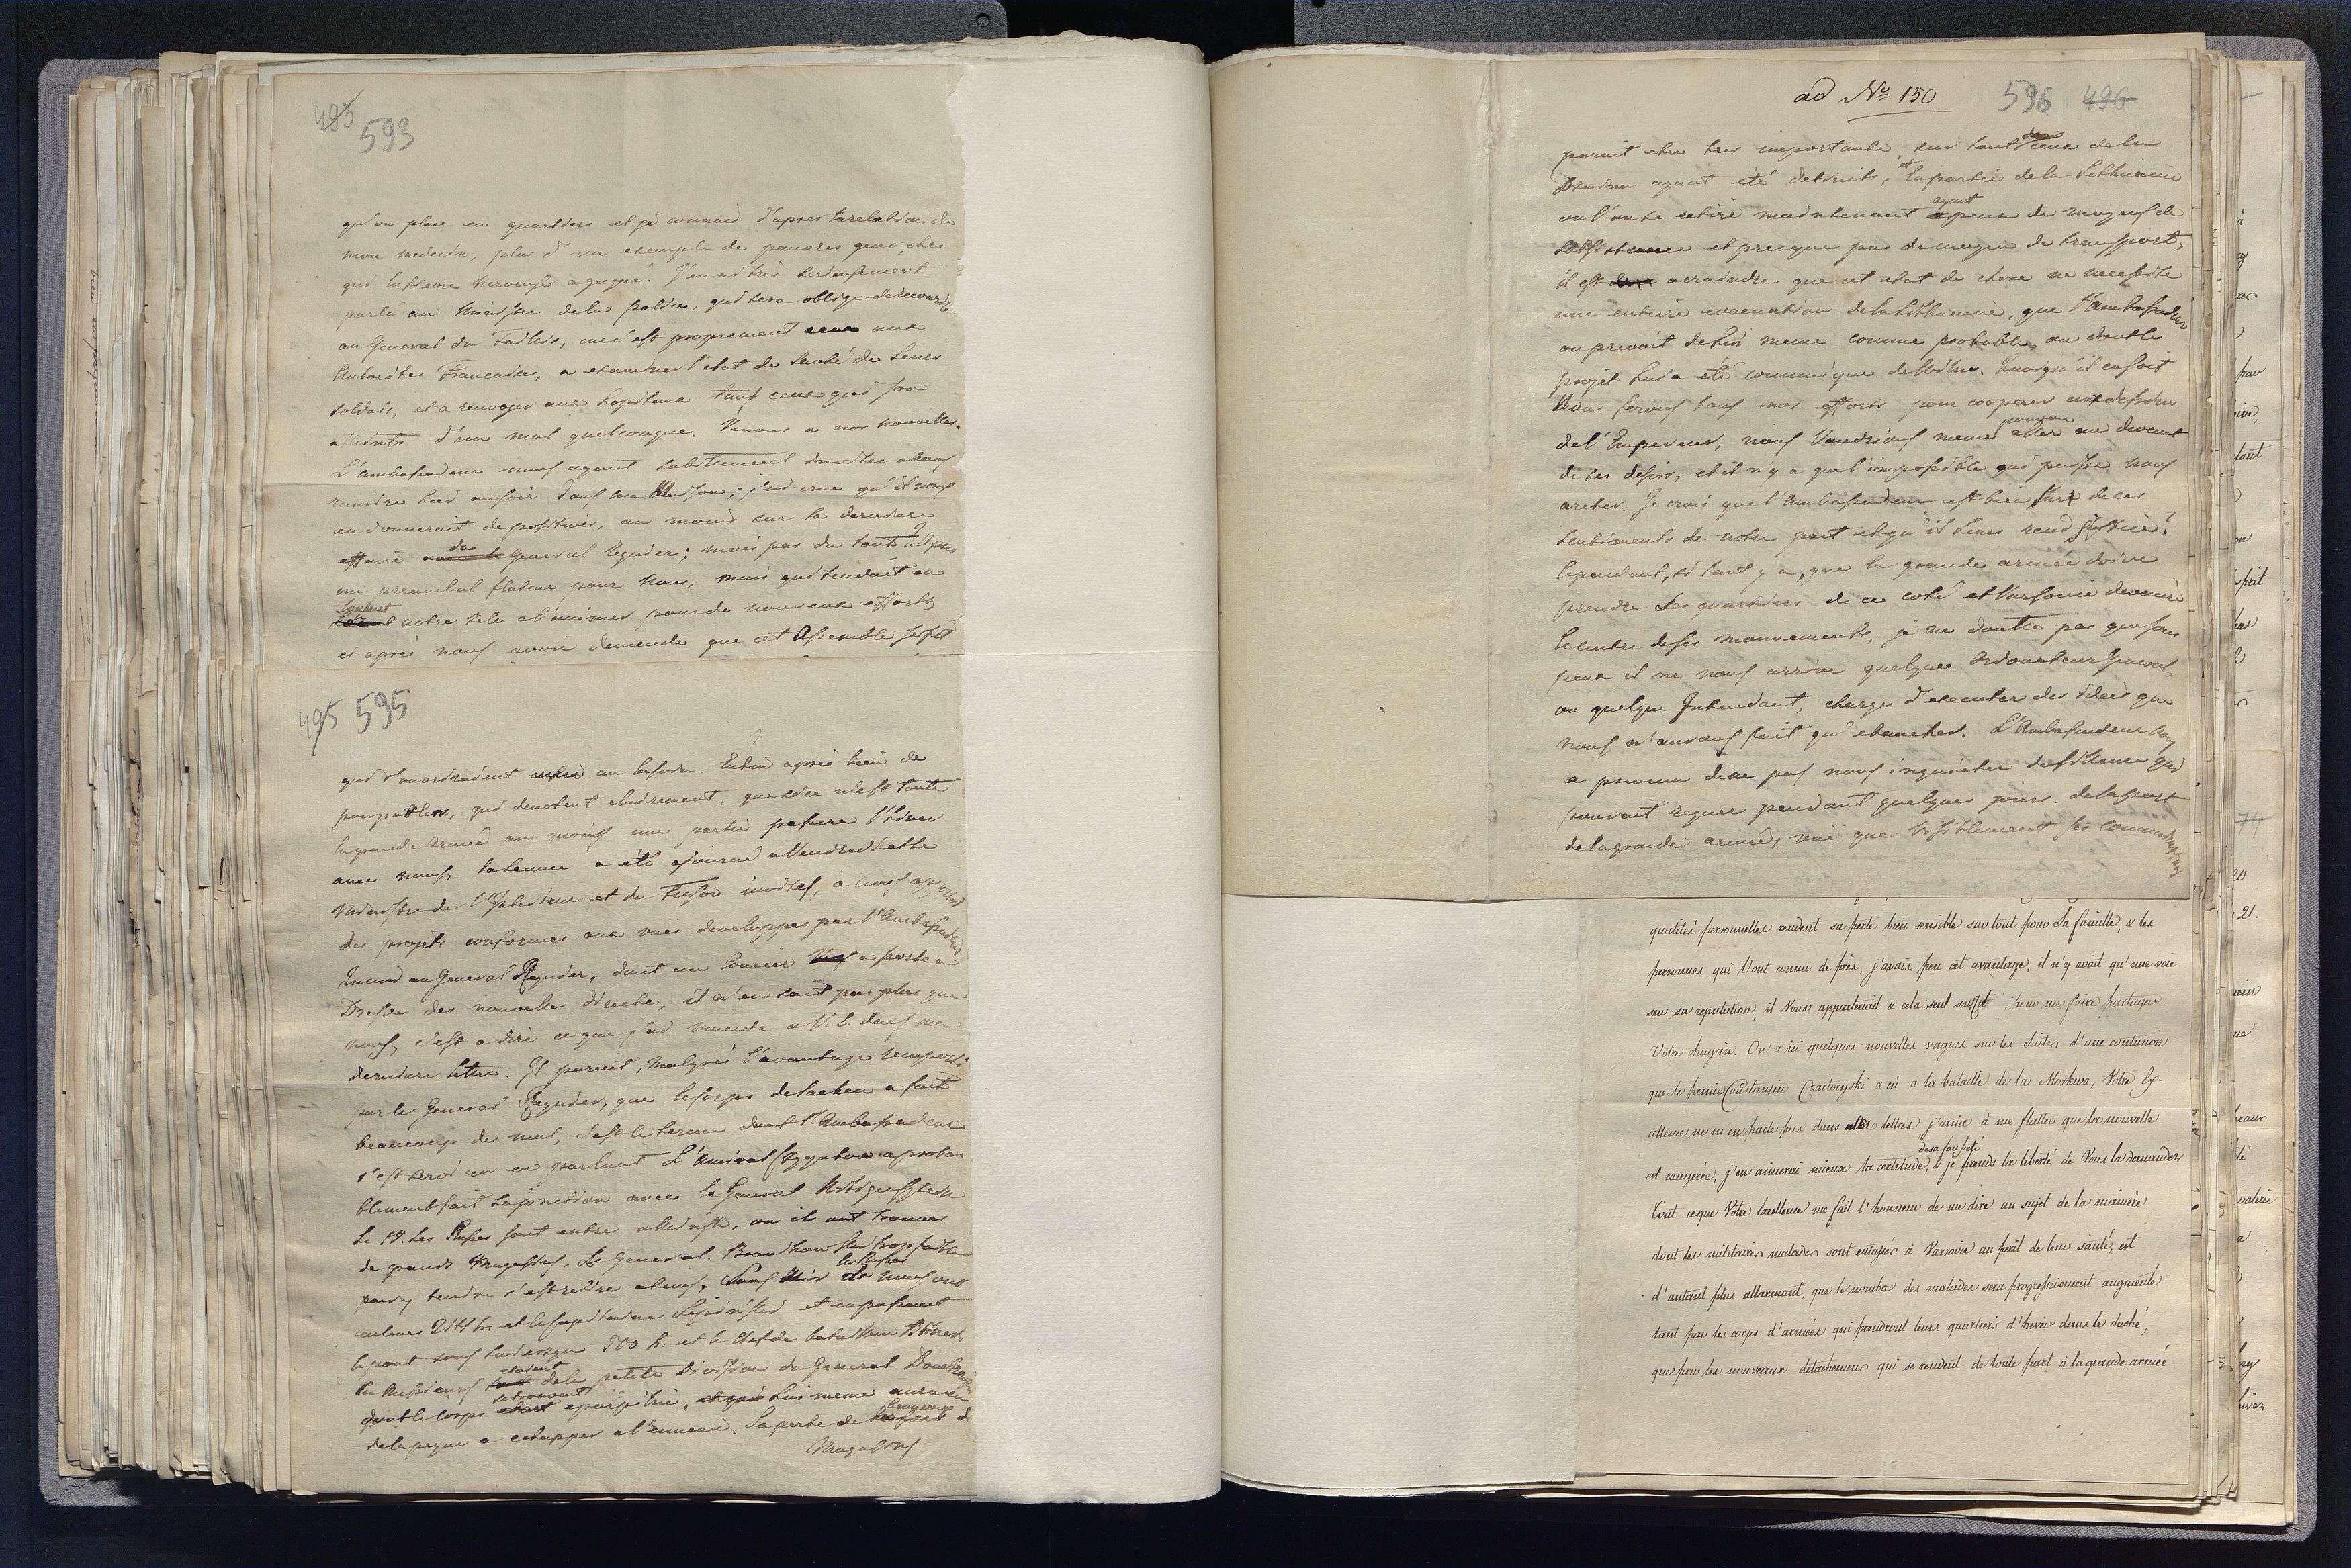 493 593
qu'on place en quartier et je connais d'apres la relation de
mon medecin, plus d'un exemple de pauvres gens, ches
qui la fievre nerveuse a gagné. J'en ai très serieusement
parlé au Ministre de la police, qui sera obligé de recourir
au General du Taillis, car c'est proprement aux
Autorités Francaises, a examiner l'état de santé de leurs
soldats, et a renvoyer aux hopitaux tous ceux qui son
atteints d'un mal quelconque. Venons a nos nouvelles.
L'ambassadeur nous ayant subitement invités a nous
reunire hier au soir dans sa Maison; j'ai crue qu'il nous
en donnerait de positives, au moins sur la derniere
affaire avec le du General Regnier; mais pas du tout. Apres
un preambul flateur pour nous, mais qui tendait en
louant notre zele a l'animer pour de nouveux efforts
et après nous avoir demendé que cet Assemblé se fit
495 595
qui s'ouvriraient au besoin. Enfin après bien de
pourparlers, qui denotent clairement, que si ce n'est toute
la grande Armée au moins une partie passera l'hiver
avec nous, la seance a été ajourné a Vendredi et les
Ministre de l'Interieur et du Tresor invités, a nous apporter
des projets conformes aux vues developpés par l'Ambassadeur
Quand au General Regnier, dont un Courier a porté a
Dresde des nouvelles directes, il n'en sait pas plus que
nous, c'est a dire ce que j'ai mandé a V. E. dans ma
derniere lettre. Il parait, malgrès l'avantage remporté
par le General Regnier, que le corps de Sacken a fait
beaucoup de mal, c'est le terme dont l'Ambassadeur
s'est servi en en parlant L'Amiral Czyczakow a proba-
blement fait sa jonction avec le General Witgensztein
Le 18. Les Russes sont entrés a Minsk, ou ils ont trouver
de grands Magasins. Le General Bronikowski trop faible
pour y tendre s'est retiré a tems. Sous Mir les Russes nous ont
enlevés 2144 h. et le Capitaine et en passant
le pont sous 500 h. et le Chef de bataillon
les Messieurs etaient de la petite Division du General Dombrowski
dont le corps se trouvant eparpillé, lui meme aura eu
de la peine a echapper a l'ennemi. La perte de beaucoup de
Magasins
ad No 150 596 496
parait etre tres importante, sur tout ceux de la
Dzwina ayant été detruits, et la partie de la Lithuanie
ou l'on se retire maintenant ayant peux de moyens de
subsistance et presque pas de moyen de transport,
il est a craindre que cet etat de chose ne necessite
une entiere evacuation de la Lithuanie, que l'Ambassadeur
ou prevoit de lui meme comme probable, ou dont le
projet lui a été communiqué de Wilna. Quoiqu'il en soit
Nous ferons tous nos efforts pour cooperer aux desseins
de l'Empereur, nous voudrions meme pouvoir aller au devant
de ses desirs, et il n'y a que l'impossible qui puisse nous
areter. Je crois que l'Ambassadeur est bien sur de ces
sentiments de notre part et qu'il leurs rend justice.
Cependant, si tant y a, que la grande armée doive
prendre ses quartiers de ce coté et Varsovie devenire
le centre de ses mouvements, je ne doutte pas que sous
peux il ne nous arrive quelque Ordonateur General,
ou quelque Intendant, chargé d'executer des idées que
nous n'aurons fait qu'ebaucher. L'Ambassadeur nous
a prevenu de ne pas nous inquieter du silence qui
pouvait regner pendant quelques jours de la part
de la grande armée, vue que visiblement ses communications
qualités personnelles rendent sa perte bien sensible sur tout pour Sa famille, & les
personnes qui l'ont connu de près, j'avais peu cet avantage, il n'y avait qu'une voie
sur sa reputation, il Vous appartenait & cela seul suffit, pour me faire partager
Votre chagrin. On a ici quelques nouvelles vagues sur les Suites d'une contusion
que le prince Constantin Czartoryski a eu à la bataille de la Moskwa, Votre Ex-
cellence ne m'en parle pas dans ses lettres, j'aime à me flatter que la nouvelle
est exagerée, j'en aimerai mieux la certitude, de sa fausseté & je prends la liberté de Vous la demander
Tout ce que Votre Excellence me fait l'honneur de me dire au sujet de la manière
dont les militaires malades sont entassés à Varsovie au peril de leur santé, est
d'autant plus allarmant, que le nombre des malades sera progressivement augmenté
tant par les corps d'armées qui prendront leurs quartiers d'hiver dans le duché,
que par les nouveaux detachemens qui se rendent de toute part à la grande armée